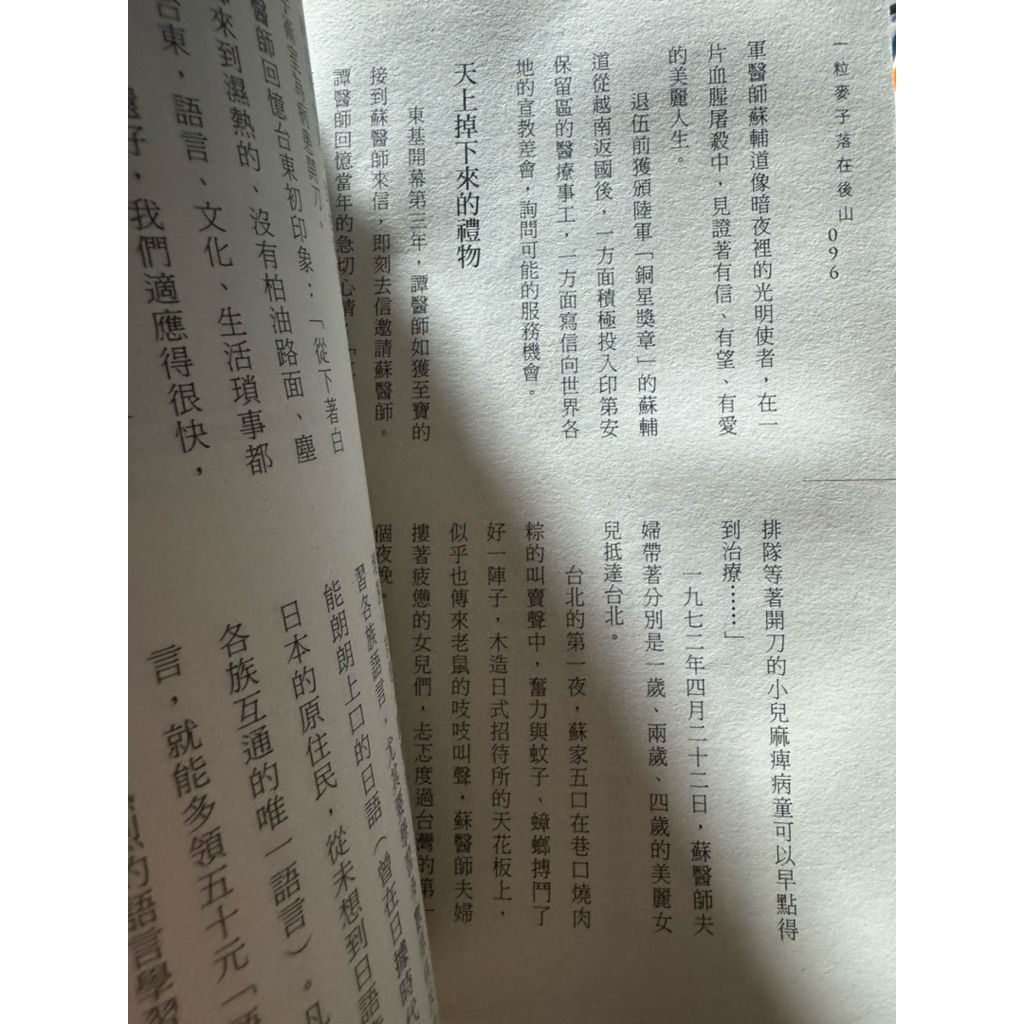 一粒麥子落在後山 096
軍醫師蘇輔道像暗夜裡的光明使者，在一
片血腥屠殺中，見證著有信、有望、有愛
的美麗人生。
退伍前獲頒陸軍「銅星獎章」的蘇輔
道從越南返國後，一方面積極投入印第安
保留區的醫療事工，一方面寫信向世界各
地的宣教差會，詢問可能的服務機會。
天上掉下來的禮物
東基開幕第三年，譚醫師如獲至寶的
接到蘇醫師來信，即刻去信邀請蘇醫師。
譚醫師回憶當年的急切心情
排隊等著開刀的小兒麻痺病童可以早點得
到治療……」
一九七二年四月二十二日，蘇醫師夫
婦帶著分別是一歲、兩歲、四歲的美麗女
兒抵達台北。
台北的第一夜，蘇家五口在巷口燒肉
粽的叫賣聲中，奮力與蚊子、蟑螂搏鬥了
好一陣子，木造日式招待所的天花板上，
似乎也傳來老鼠的吱吱叫聲，蘇醫師夫婦
摟著疲憊的女兒們，忐忑度過台灣的第一
個夜晚。
開刀。
醫師回憶台東初印象：「從下著白
來到濕熱的、沒有柏油路面、塵
台東，語言、文化、生活瑣事都
還好，我們適應得很快，
習各族語言，尤其
能朗朗上口的日語（曾在日據時代
日本的原住民，從未想到日語
各族互通的唯一語言）。凡
言，就能多領五十元「語
的語言學習